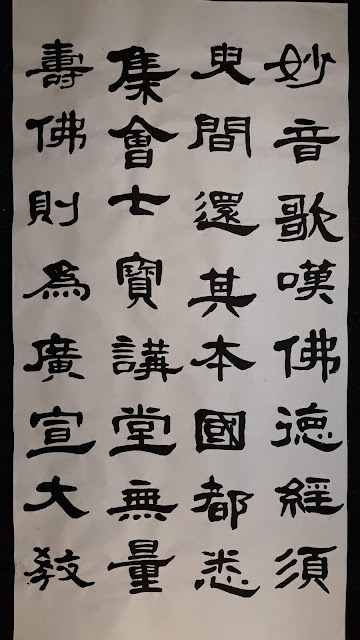 妙音歌嘆佛德經須
臾間還其本國都悉
集會七寶講堂無量
壽佛則為廣宣大教